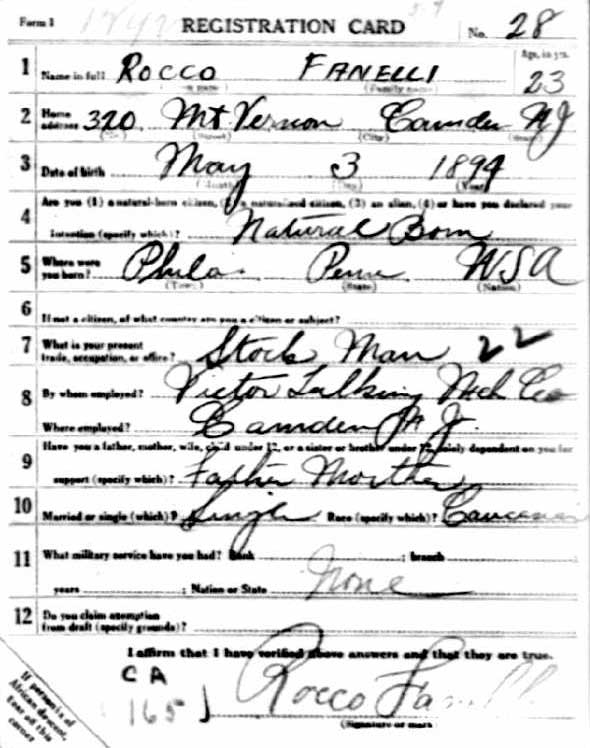 Form 1 REGISTRATION CARD No. 28
1 Name in full Rocco Fanelli Age, in yrs. 23
(Family name)
2 Home address 320 Mt Vernon Camden NJ
(No.) (Street) (City) (State)
3 Date of birth May 3 1894
(Month) (Day) (Year)
4 Are you (1) a natural-born citizen, (2) a naturalized citizen, (3) an alien, (4) or have you declared your
intention (specify which)? Natural Born
5 Where were you born? Phila. Penn USA
(Town) (State) (Nation)
6 If not a citizen, of what country are you a citizen or subject?
7 What is your present trade, occupation, or office? Stock Man 22
8 By whom employed? Victor Talking Mch Co
Where employed? Camden N J.
9 Have you a father, mother, wife, child under 12, or a sister or brother under 12, solely dependent on you for
support (specify which)? Father Mother
10 Married or single (which)? Single Race (specify which)? Caucasian
11 What military service have you had? Rank ; branch
years ; Nation or State None
12 Do you claim exemption from draft (specify grounds)?
I affirm that I have verified above answers and that they are true.
C A
165
Rocco Fanelli
(Signature or mark
If person is of African descent, tear off this corner